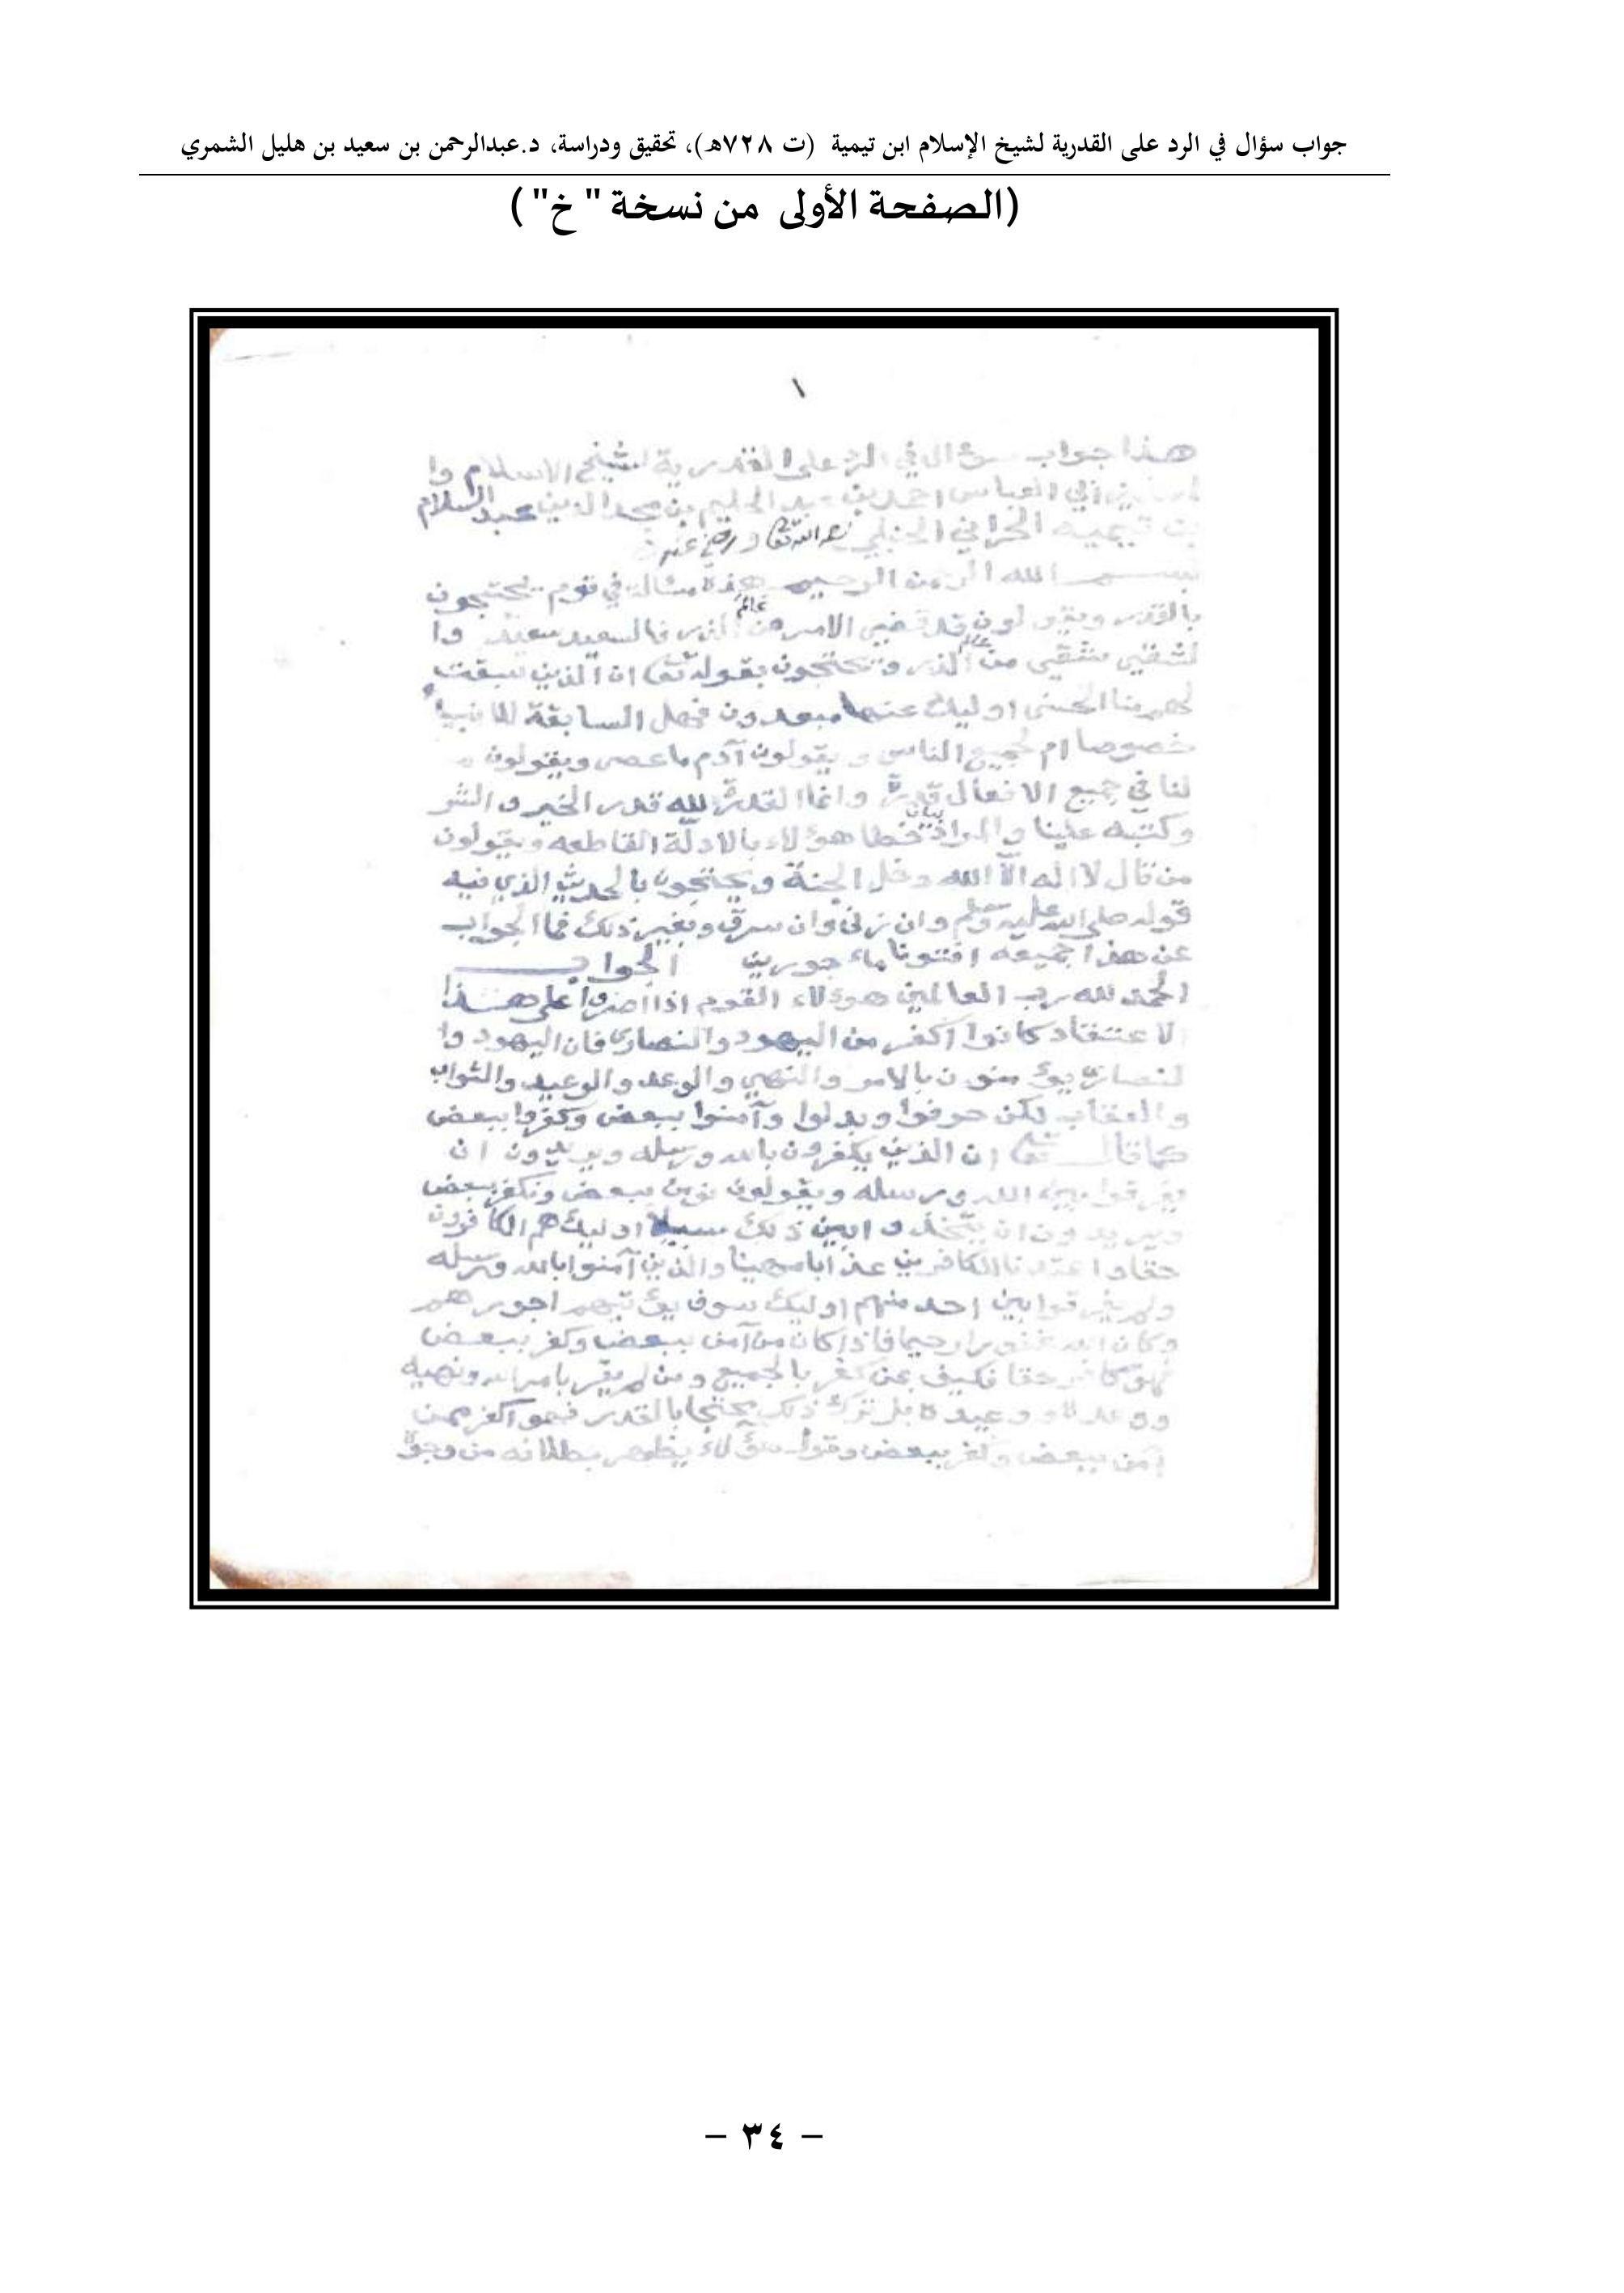 جواب سؤال في الرد على القدرية لشيخ الإسلام ابن تيمية (ت ٧٢٨هـ)، تحقيق ودراسة، د.عبدالرحمن بن سعيد بن هليل الشمري
(الصفحة الأولى من نسخة " خ" )
١
هذا جواب سؤال في الرد على القدرية لشيخ الاسلام وا
ابي العباس احمد بن عبد الحليم بن مجد الدين عبد السلام
بن تيميه الحراني الحنبلي رضي عنه
بسم الله الرحمن الرحيم هذه مسالة في قوم يحتجون
بالقدر ويقولون قد قضي الامر من عالم الذر فالسعيد سعيد وا
لشقي شقي من عالم الذر ويحتجون بقوله تعا ان الذين سبقت
لهم منا الحسنى اوليك عنها مبعدون فهل السابقة للانبياء
خصوصا ام لجميع الناس ويقولون آدم ما عصى ويقولون م
لنا في جميع الافعال قدرة وانما القدرة لله قدر الخير والشر
وكتبه علينا والمراد بيان خطا هؤلاء بالادلة القاطعه ويقولون
من قال لا اله الا الله دخل الجنة ويحتجون بالحديث الذي فيه
قوله صلى الله عليه وسلم وان زنى وان سرق وبغير ذلك فما الجواب
عن هذا جميعه افتونا ماءجورين الجواب
الحمد لله رب العالمين هوءلاء القوم اذا اصروا على هذا
الاعتقاد كانوا اكفر من اليهود والنصارى فان اليهود وا
لنصارى يؤمنون بالامر والنهي والوعد والوعيد والثواب
والعقاب لكن حرفوا وبدلوا وآمنوا ببعض وكفروا ببعض
كما قال تعا ان الذين يكفرون بالله ورسله ويريدون ان
يفرقوا بين الله ورسله ويقولون نومن ببعض ونكفر ببعض
ويريدون ان يتخذوا بين ذلك سبيلا اوليك هم الكافرون
حقا واعتدنا للكافرين عذابا مهينا والذين آمنوا بالله ورسله
ولم يفرقوا بين احد منهم اوليك سوف يؤتيهم اجورهم
وكان الله غفورا رحيما فاذا كان من آمن ببعض وكفر ببعض
فهو كافر حقا فكيف بمن كفر بالجميع ومن لم يقر بامر الله ونهيه
ووعده ووعيده بل ترك ذلك محتجا بالقدر فهو اكفر ممن
آمن ببعض وكفر ببعض وقول هؤلاء يظهر بطلانه من وجوه
- ٣٤ -